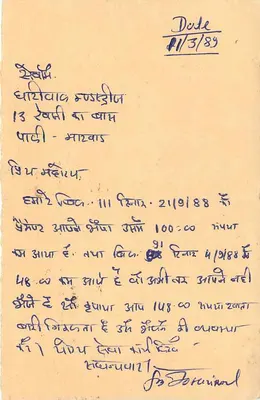 Date
11/3/89
सेवामें
धारीवाल इण्डस्ट्रीज
13 रेवन्यु का बास
पाली - मारवाड़
प्रिय महोदय,
हमारे बिल 111 दिनांक 21/9/88 का
पेमेन्ट आपने भेजा उसमें 100=00 रुपया
कम आया है. तथा बिल 91 दिनांक 4/9/88 के
48=00 कम आये है जो अभी तक आपने नही
भेजे है सो कृपया आप 148=00 रुपया
बाकी निकलता है उसे भेजने की व्यवस्था
करे। योग्य सेवा लिखें
धन्यवाद।